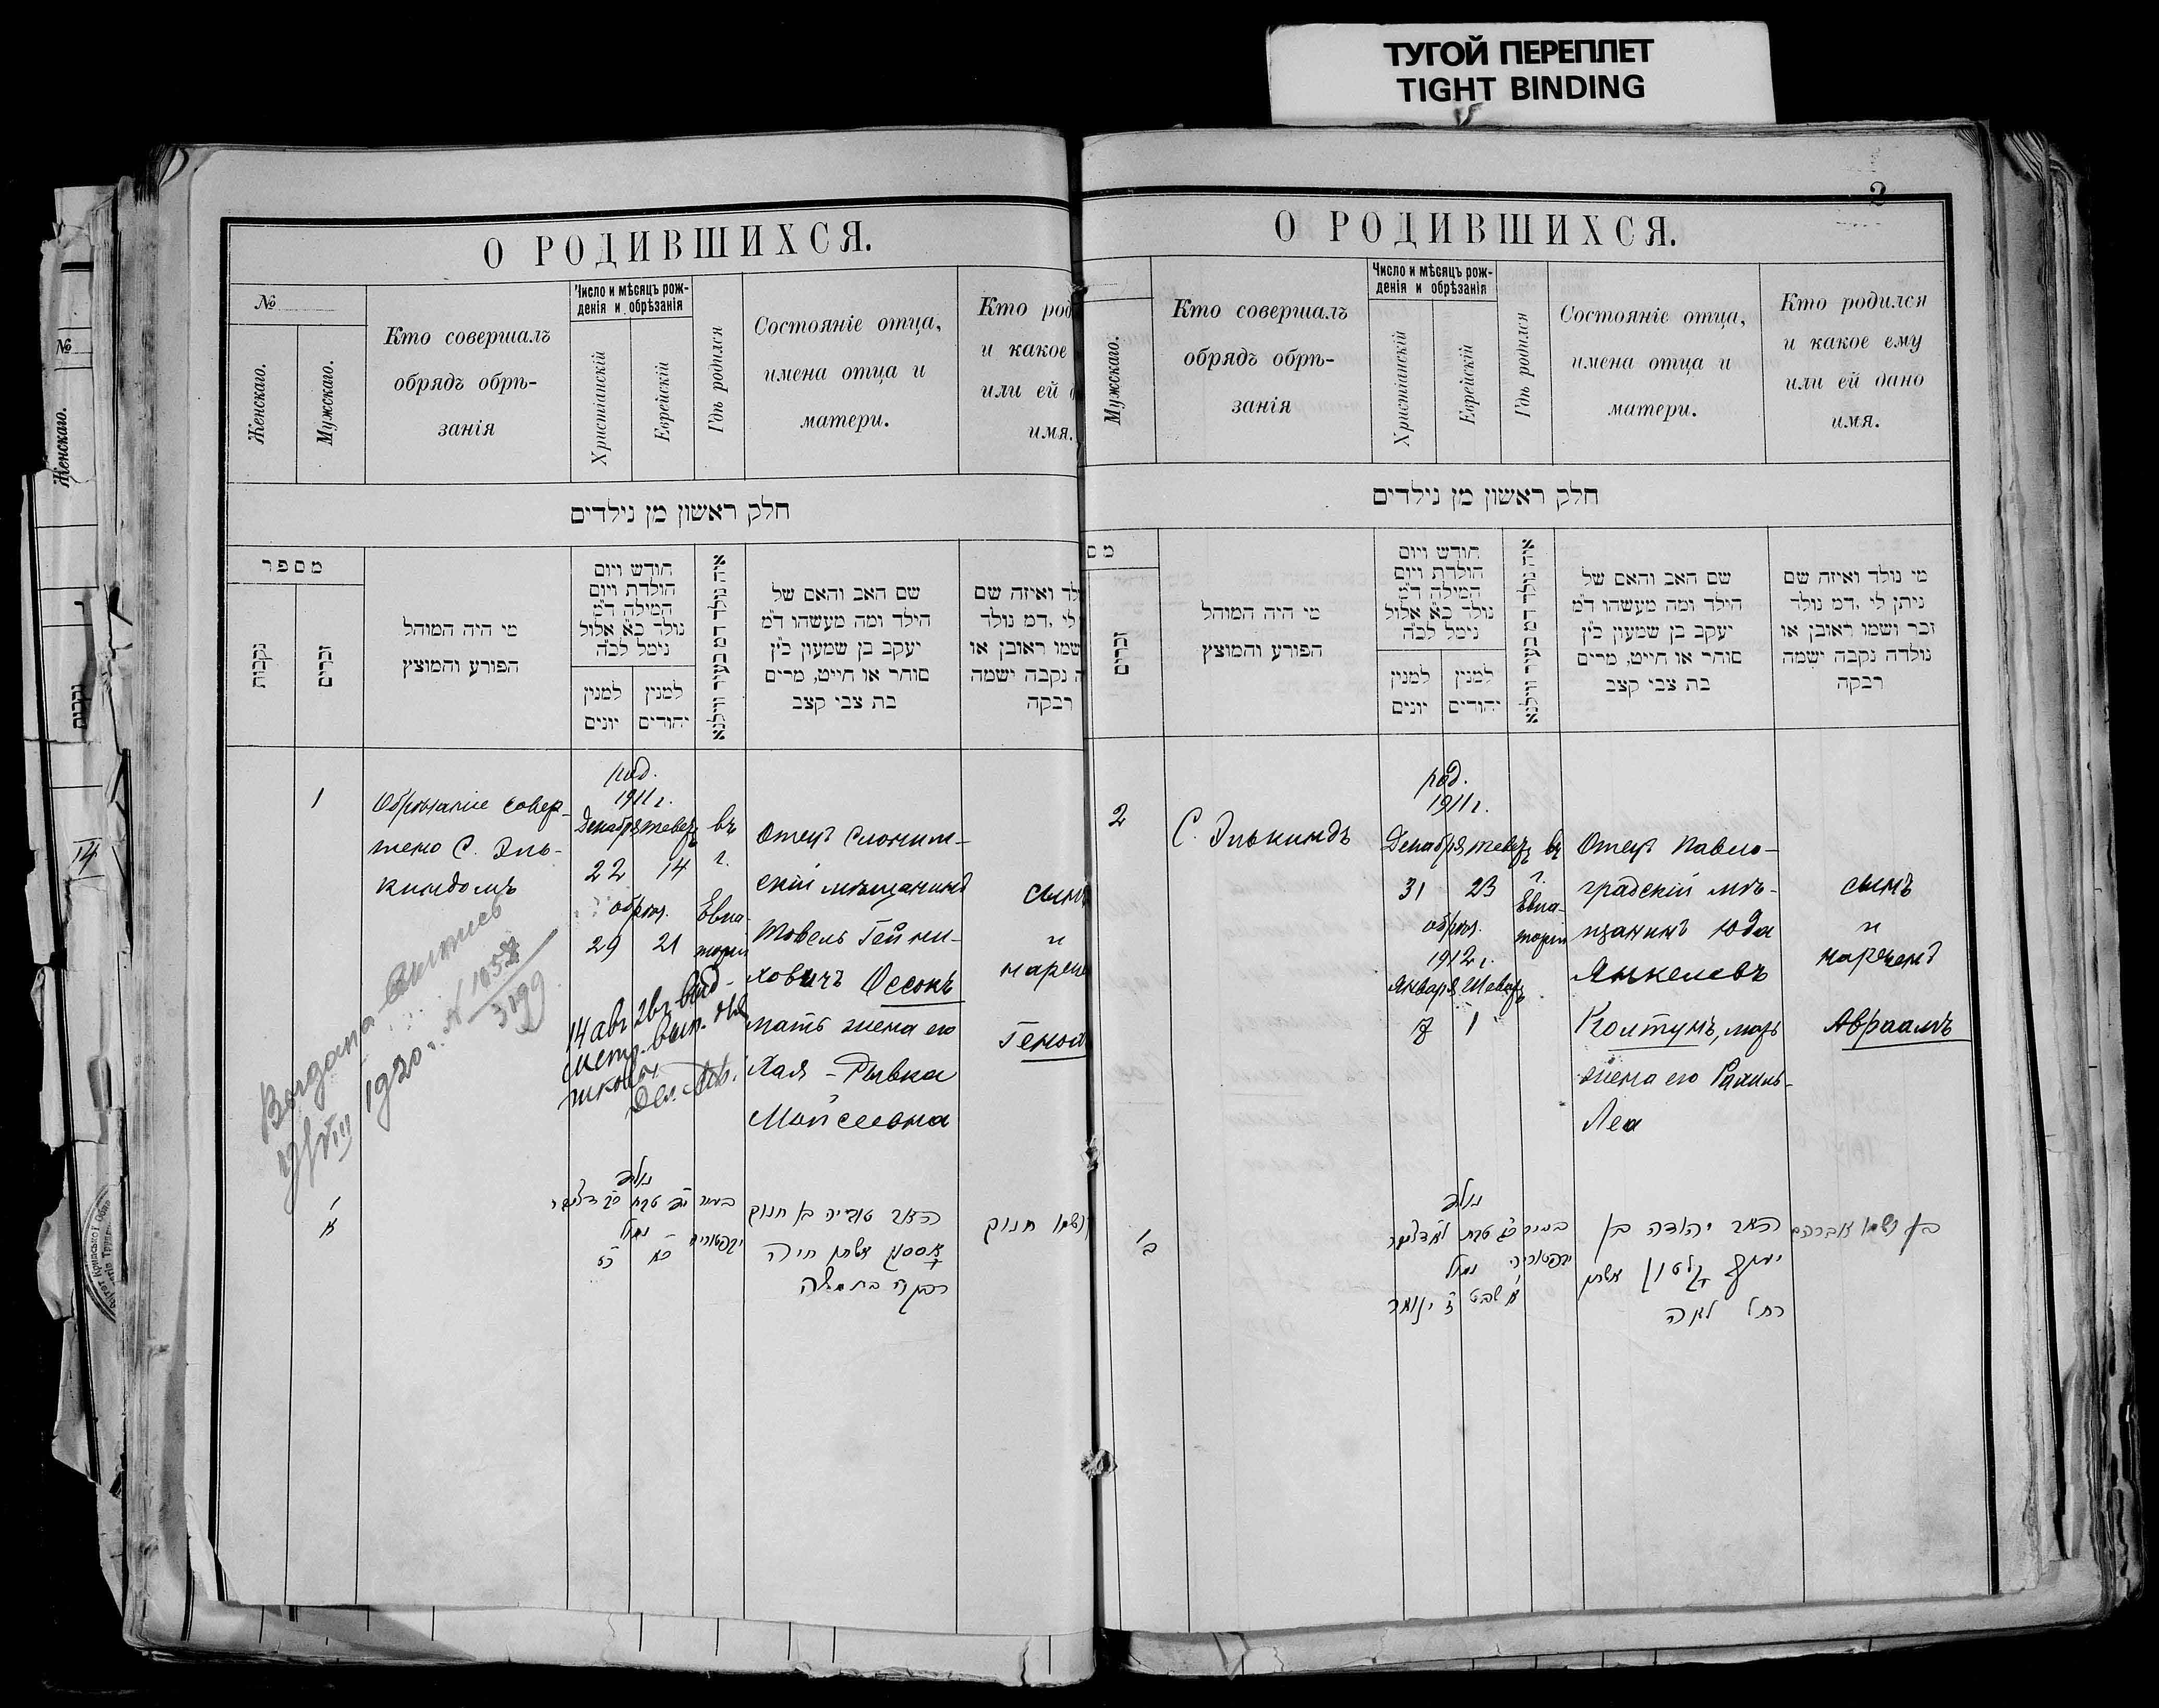 ТУГОЙ ПЕРЕПЛЕТ
TIGHT BINDING
О РОДИВШИХСЯ.
№
Женскаго.
Мужскаго.
Кто совершалъ
обрядъ обрѣ-
занія
Число и мѣсяцъ рож-
денія и обрѣзанія
Христіанскій
Еврейскій
Гдѣ родился
Состояніе отца,
имена отца и
матери.
Кто род
и какое
или ей д
имя.
חלק ראשון מן נילדים
מספר
נקבות
זכרים
מי היה המוהל
הפורע והמוצץ
חודש ויום
הולדת ויום
המילה ד״מ
נולד כ״א אלול
נימל לכ״ה
למנין
יונים
למנין
יהודים
איה נולד דמ בעיר ווילנא
שם האב והאם של
הילד ומה מעשהו ד״מ
יעקב בן שמעון כ״ץ
סוחר או חייט, מרים
בת צבי קצב
לד ואיזה שם
לי ,דמ נולד
שמו ראובן או
ה נקבה ישמה
רבקה
1
Обрѣзаніе совер-
шено С. Эль-
киндомъ
род.
1911 г.
Декабря тевет
22 14
обрѣз.
29 21
въ
г.
Евпа-
торіи
Отецъ Слоним-
скій мѣщанинъ
Товель Гейни-
ховичъ Оссонъ
мать жена его
Хая-Рывка
Мойсеевна
сынъ
и
нарече
Генох
Выдана выпись
1920 г. №
3199
א
נולד
י״ד טבת כ״ב דעצמבר
נימול
כ״א כ״ט
בעיר
יבפטוריה
האב טוביה בן חנוך
אסטון אשתו חיה
רבקה בת משה
ושמו חנוך
2
О РОДИВШИХСЯ.
Мужскаго.
Кто совершалъ
обрядъ обрѣ-
занія
Число и мѣсяцъ рож-
денія и обрѣзанія
Христіанскій
Еврейскій
Гдѣ родился
Состояніе отца,
имена отца и
матери.
Кто родился
и какое ему
или ей дано
имя.
חלק ראשון מן נילדים
מס
זכרים
מי היה המוהל
הפורע והמוצץ
חודש ויום
הולדת ויום
המילה ד״מ
נולד כ״א אלול
נימל לכ״ה
למנין
יונים
למנין
יהודים
איה נולד דמ בעיר ווילנא
שם האב והאם של
הילד ומה מעשהו ד״מ
יעקב בן שמעון כ״ץ
סוחר או חייט, מרים
בת צבי קצב
מי נולד ואיזה שם
ניתן לי ,דמ נולד
זכר ושמו ראובן או
נולדה נקבה ישמה
רבקה
2
С. Элькиндъ
род.
1911 г.
Декабря тевет
31 23
обрѣз.
1912 г.
Января Шеват
7 1
въ
г.
Евпа-
торіи
Отецъ Павло-
градскій мѣ-
щанинъ Юда
Янкелевъ
Колтунъ, мать
жена его Рахиль-
Леа
сынъ
и
нареченъ
Авраамъ
ב
נולד
כ״ג טבת ל״א דעצמבר
נימול
א שבט ז ינואר
בעיר
יבפטוריה
האב יהודה בן
יעקב קולטון אשתו
רחל לאה
בן ושמו אברהם